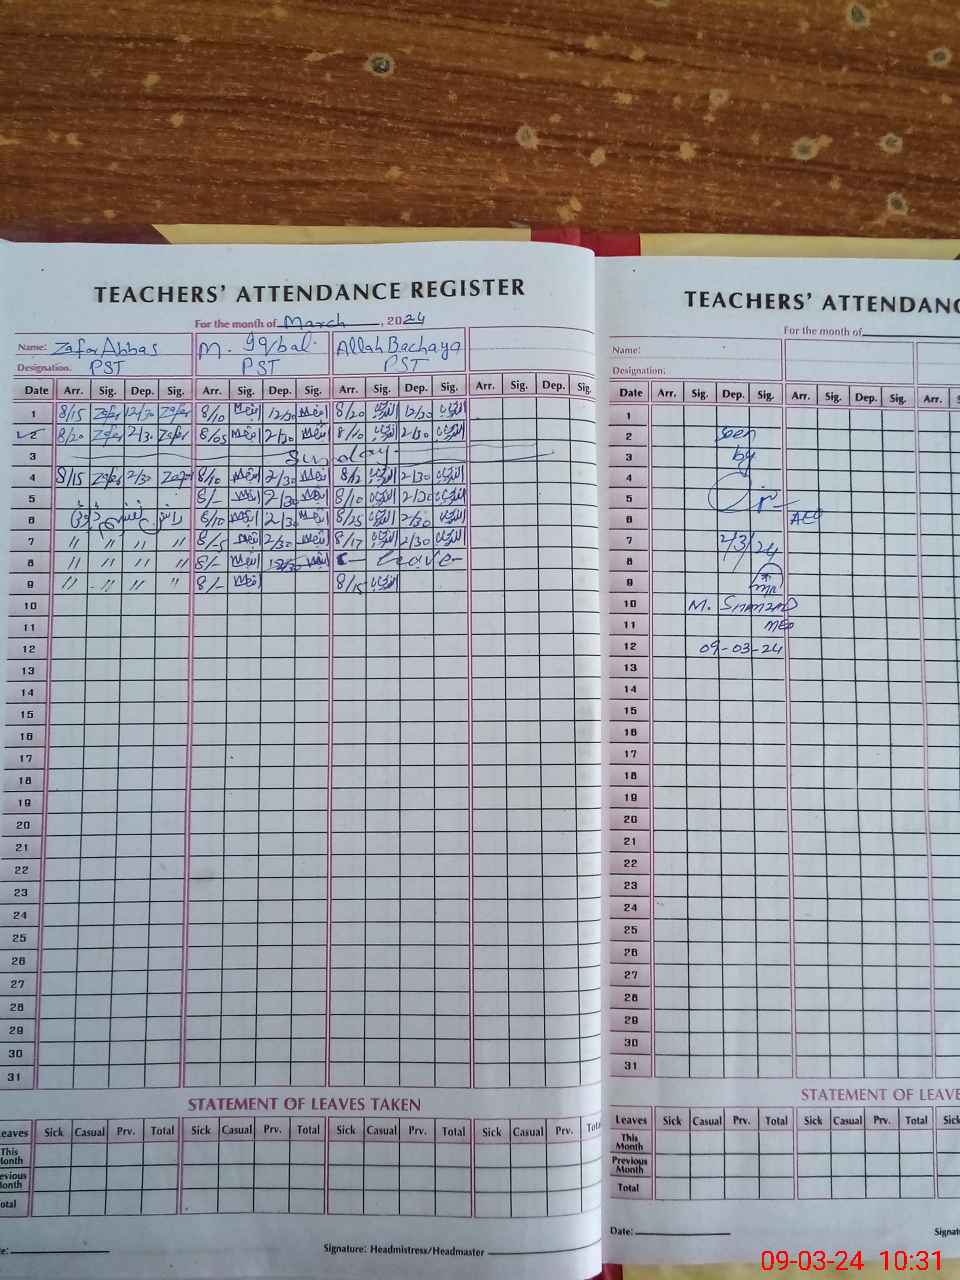 TEACHERS' ATTENDANCE REGISTER
For the month of March, 2024
Name: Zafar Abbas M. Iqbal Allah Bachaya
Designation. PST PST PST
Date Arr. Sig. Dep. Sig. Arr. Sig. Dep. Sig. Arr. Sig. Dep. Sig. Arr. Sig. Dep. Sig.
1 8/15 Zafar 12/30 Zafar 8/10 12/30 8/20 12/30
2 8/20 Zafar 2/30 Zafar 8/05 2/30 8/10 2/30
3 Sunday
4 8/15 Zafar 2/30 Zafar 8/10 2/30 8/12 2/30
5 8/- 2/30 8/10 2/30
6 8/10 2/30 8/25 2/30
7 " " " " 8/5 2/30 8/17 2/30
8 " " " " 8/- Leave
9 " " " " 8/- 8/15
10
11
12
13
14
15
16
17
18
19
20
21
22
23
24
25
26
27
28
29
30
31
STATEMENT OF LEAVES TAKEN
Leaves Sick Casual Prv. Total Sick Casual Prv. Total Sick Casual Prv. Total Sick Casual Prv. Total
This Month
Previous Month
Total
Signature: Headmistress/Headmaster
TEACHERS' ATTENDANC
For the month of
Name:
Designation:
Date Arr. Sig. Dep. Sig. Arr. Sig. Dep. Sig. Arr. S
1
2 Seen
3 by
4
5
6 AEO
7 2/3/24
8
9
10 M.
11 MEO
12 09-03-24
13
14
15
16
17
18
19
20
21
22
23
24
25
26
27
28
29
30
31
STATEMENT OF LEAVE
Leaves Sick Casual Prv. Total Sick Casual Prv. Total Sick
This Month
Previous Month
Total
Date:
Signat
09-03-24 10:31